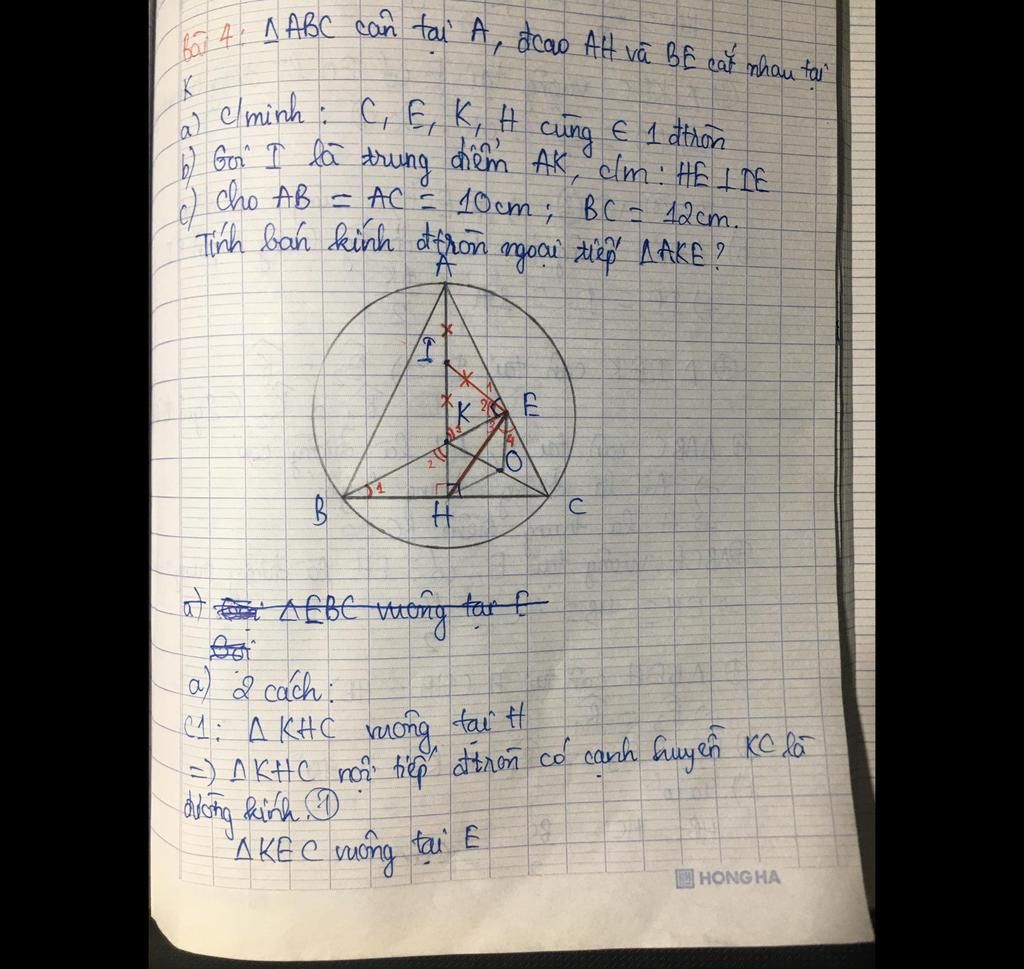 Bài 4: ΔABC cân tại A, đcao AH và BE cắt nhau tại
K
a) c/minh: C, E, K, H cùng ∈ 1 đtròn
b) Gọi I là trung điểm AK, c/m: HE ⊥ IE
c) cho AB = AC = 10cm; BC = 12cm.
Tính bán kính đtròn ngoại tiếp ΔAKE?
A
I
1
K
2
E
3
4
O
2
B
1
H
C
a) ΔEBC vuông tại E
Gọi
a) 2 cách:
C1: Δ KHC vuông tại H
=) ΔKHC nội tiếp đtròn có cạnh huyền KC là
đường kính. ①
ΔKEC vuông tại E
HONG HA